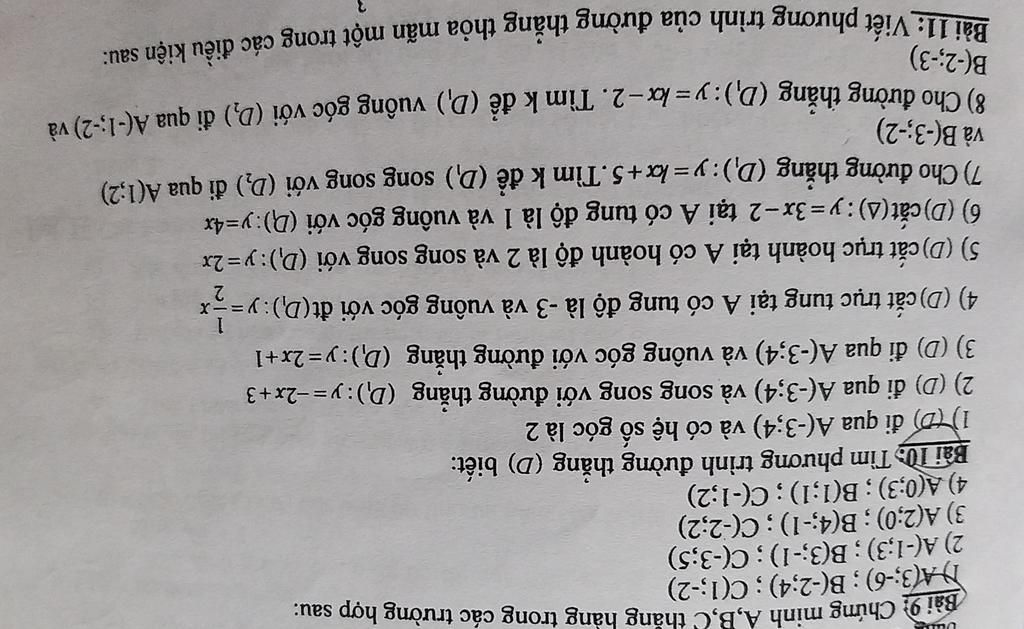 Bài 9: Chứng minh A,B,C thẳng hàng trong các trường hợp sau:
1) A(3;-6) ; B(-2;4) ; C(1;-2)
2) A(-1;3) ; B(3;-1) ; C(-3;5)
3) A(2;0) ; B(4;-1) ; C(-2;2)
4) A(0;3) ; B(1;1) ; C(-1;2)
Bài 10: Tìm phương trình đường thẳng (D) biết:
1) (D) đi qua A(-3;4) và có hệ số góc là 2
2) (D) đi qua A(-3;4) và song song với đường thẳng (D₁): y = −2x+3
3) (D) đi qua A(-3;4) và vuông góc với đường thẳng (D₁): y = 2x+1
4) (D)cắt trục tung tại A có tung độ là -3 và vuông góc với đt(D₁): y = 1/2 x
5) (D)cắt trục hoành tại A có hoành độ là 2 và song song với (D₁): y = 2x
6) (D)cắt(Δ): y = 3x − 2 tại A có tung độ là 1 và vuông góc với (D₁): y=4x
7) Cho đường thẳng (D₁): y = kx + 5. Tìm k để (D₁) song song với (D₂) đi qua A(1;2)
và B(-3;-2)
8) Cho đường thẳng (D₁): y = kx − 2. Tìm k để (D₁) vuông góc với (D₂) đi qua A(-1;-2) và
B(-2;-3)
Bài 11: Viết phương trình của đường thẳng thỏa mãn một trong các điều kiện sau:
3